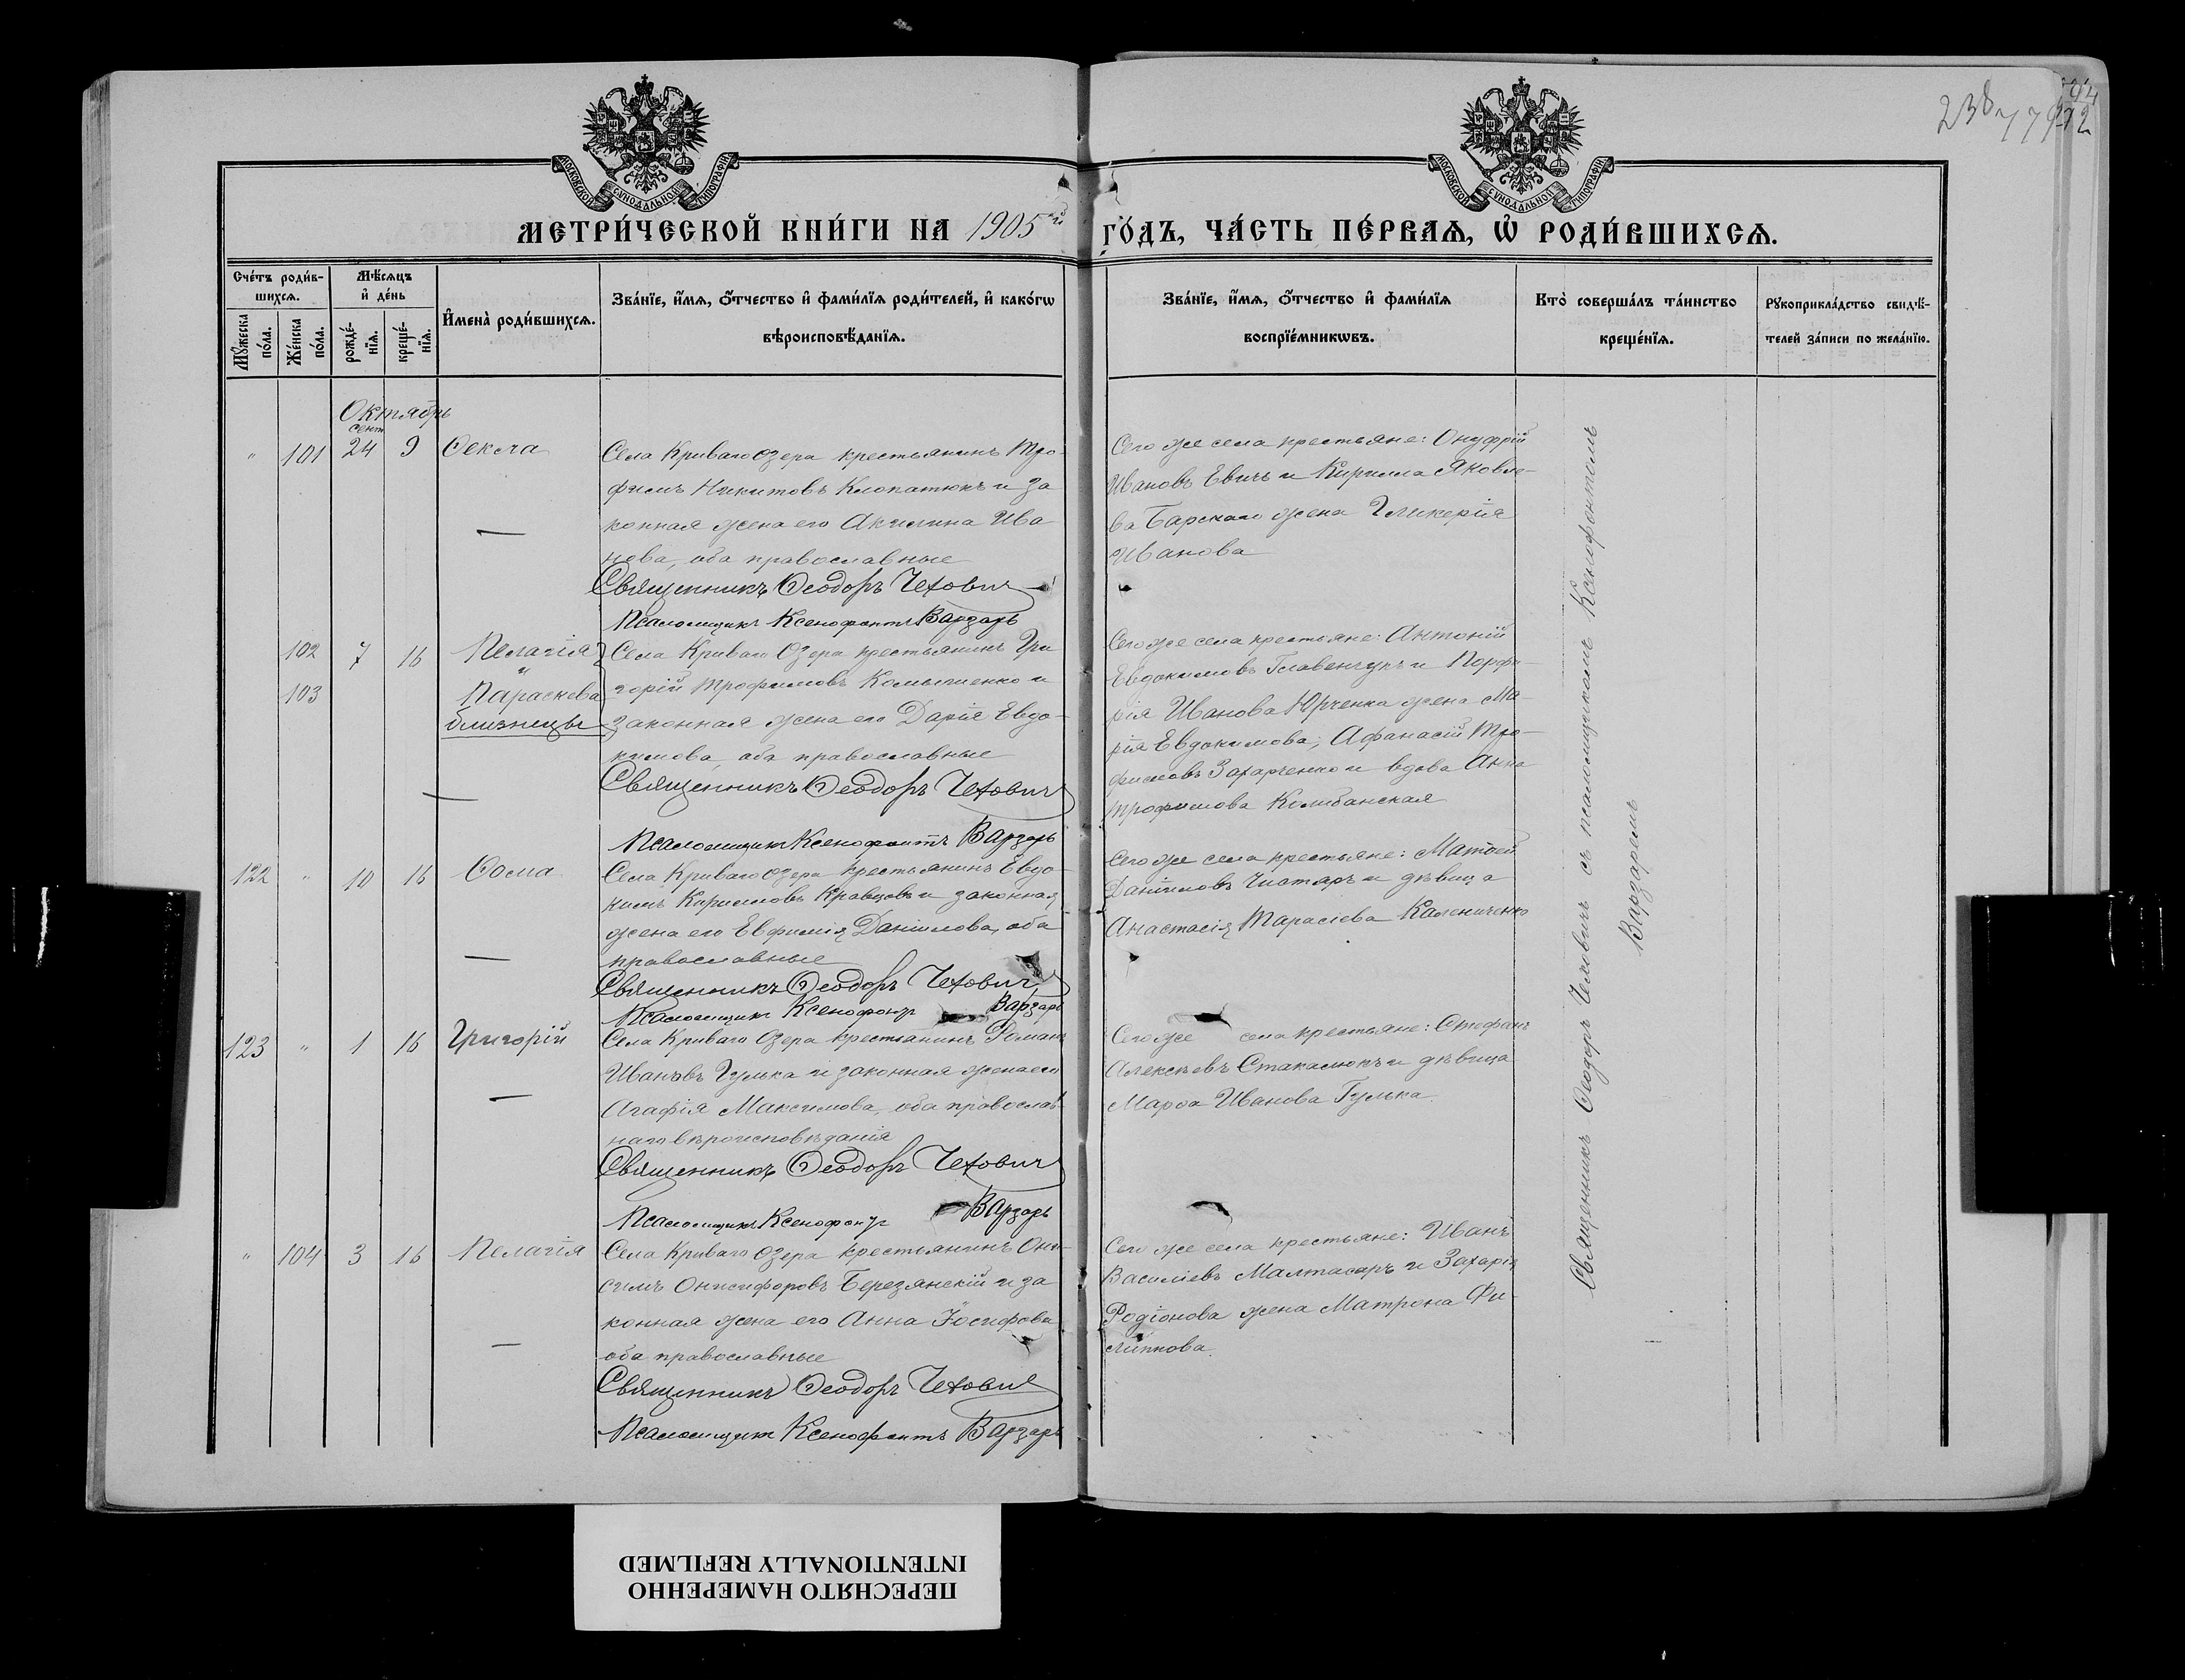 238
МОСКОВСКОЙ СѴНОДАЛЬНОЙ ТИПОГРАФІИ
МОСКОВСКОЙ СѴНОДАЛЬНОЙ ТИПОГРАФІИ
МЕТРИ́ЧЕСКОЙ КНИ́ГИ НА 1905й ГО́ДЪ, ЧА́СТЬ ПЕ́РВАѦ, Ѡ҆ РОДИ́ВШИХСѦ.
Сче́тъ роди́в-
шихсѧ.
Мꙋ́жеска
по́ла.
Же́нска
по́ла.
Мѣ́сѧцъ
и҆ де́нь
рожде́-
нїѧ.
креще́-
нїѧ.
И҆мена̀ роди́вшихсѧ.
Зва́нїе, и҆́мѧ, ѻ҆́тчество и҆ фами́лїѧ роди́телей, и҆ како́гѡ
вѣроисповѣ́данїѧ.
Зва́нїе, и҆́мѧ, ѻ҆́тчество и҆ фами́лїѧ
воспрїе́мникѡвъ.
Кто̀ соверша́лъ та́инство
креще́нїѧ.
Рꙋкоприкла́дство свидѣ́-
телей за́писи по жела́нїю.
Октябрь
сент
" 101 24 9 Ѳекла
Села Криваго Озера крестьянинъ Тро-
фимъ Никитовъ Клопатюкъ и за
конная жена его Акилина Ива
нова, оба православные
Священникъ Ѳеодоръ Чехович
Псаломщикъ Ксенофонтъ Варзарь
Сего же села крестьяне: Онуфрій
Ивановъ Евичъ и Кирилла Яковле-
ва Барскаго жена Гликерія
Иванова
102 7 16 Пелагія
и
103 Параскева
близнецы
Села Криваго Озера крестьянинъ Гри
горій Трофимовъ и
законная жена его Дарія Евдо-
кимова, оба православные
Священникъ Ѳеодоръ Чехович
Псаломщикъ Ксенофонтъ Варзарь
Сего же села крестьяне: Антоній
Евдокимовъ Главенчукъ и Порфи-
рія Иванова Юрченка жена Ма-
рія Евдокимова; Афанасій Тро-
фимовъ Захарченко и вдова Анна
Трофимова Колибанская
122 " 10 16 Ѳома
Села Криваго Озера крестьянинъ Евдо-
кимъ Кирилловъ Кравцовъ и законная
жена его Евфимія Даніилова, оба
православные
Священникъ Ѳеодоръ Чехович
Псаломщикъ Ксенофонтъ Варзарь
Сего же села крестьяне: Матѳей
Даніиловъ и дѣвица
Анастасія Тарасіева Калениченко
123 " 1 16 Григорій
Села Криваго Озера крестьянинъ Романъ
Ивановъ Гулька и законная жена его
Агафія Максимова, оба православ-
наго вѣроисповѣданія
Священникъ Ѳеодоръ Чехович
Псаломщикъ Ксенофонтъ Варзарь
Сего же села крестьяне: Стефанъ
Алексѣевъ Стакалюкъ и дѣвица
Марѳа Иванова Гулька.
" 104 3 16 Пелагія
Села Криваго Озера крестьянинъ Они-
симъ Онисифоровъ Березянскій и за
конная жена его Анна Іосифова
оба православные
Священникъ Ѳеодоръ Чехович
Псаломщикъ Ксенофонтъ Варзарь
Сего же села крестьяне: Иванъ
Василіевъ Малтасаръ и Захарія
Родіонова жена Матрона Фи-
липпова.
Священникъ Ѳеодоръ Чеховичъ съ псаломщикомъ Ксенофонтомъ
Варзаремъ
ПЕРЕСНЯТО НАМЕРЕННО
INTENTIONALLY REFILMED